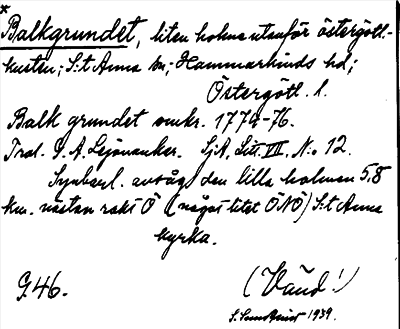 *
Balkgrundet, liten holme utanför östergötl.-
kusten; S:t Anna sn; Hammarkinds hd;
Östergötl. l.
Balk grundet omkr. 1774-76.
Trol. P. A. Lejonanker. SjA, Litt. VII, N:o 12.
Synbarl. avsågs den lilla holmen 5,8
km. nästan rakt Ö (något litet ÖNÖ) S:t Anna
kyrka.
G.46. (Vänd!)
S. 1939.